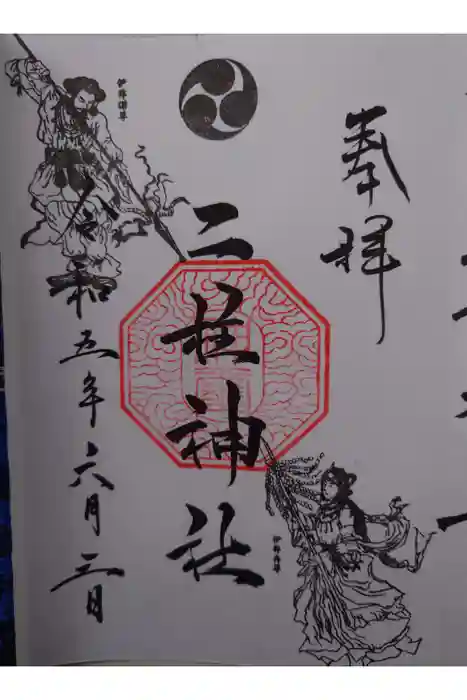 奉拝
二柱神社
伊弉諾尊
令和五年六月三日